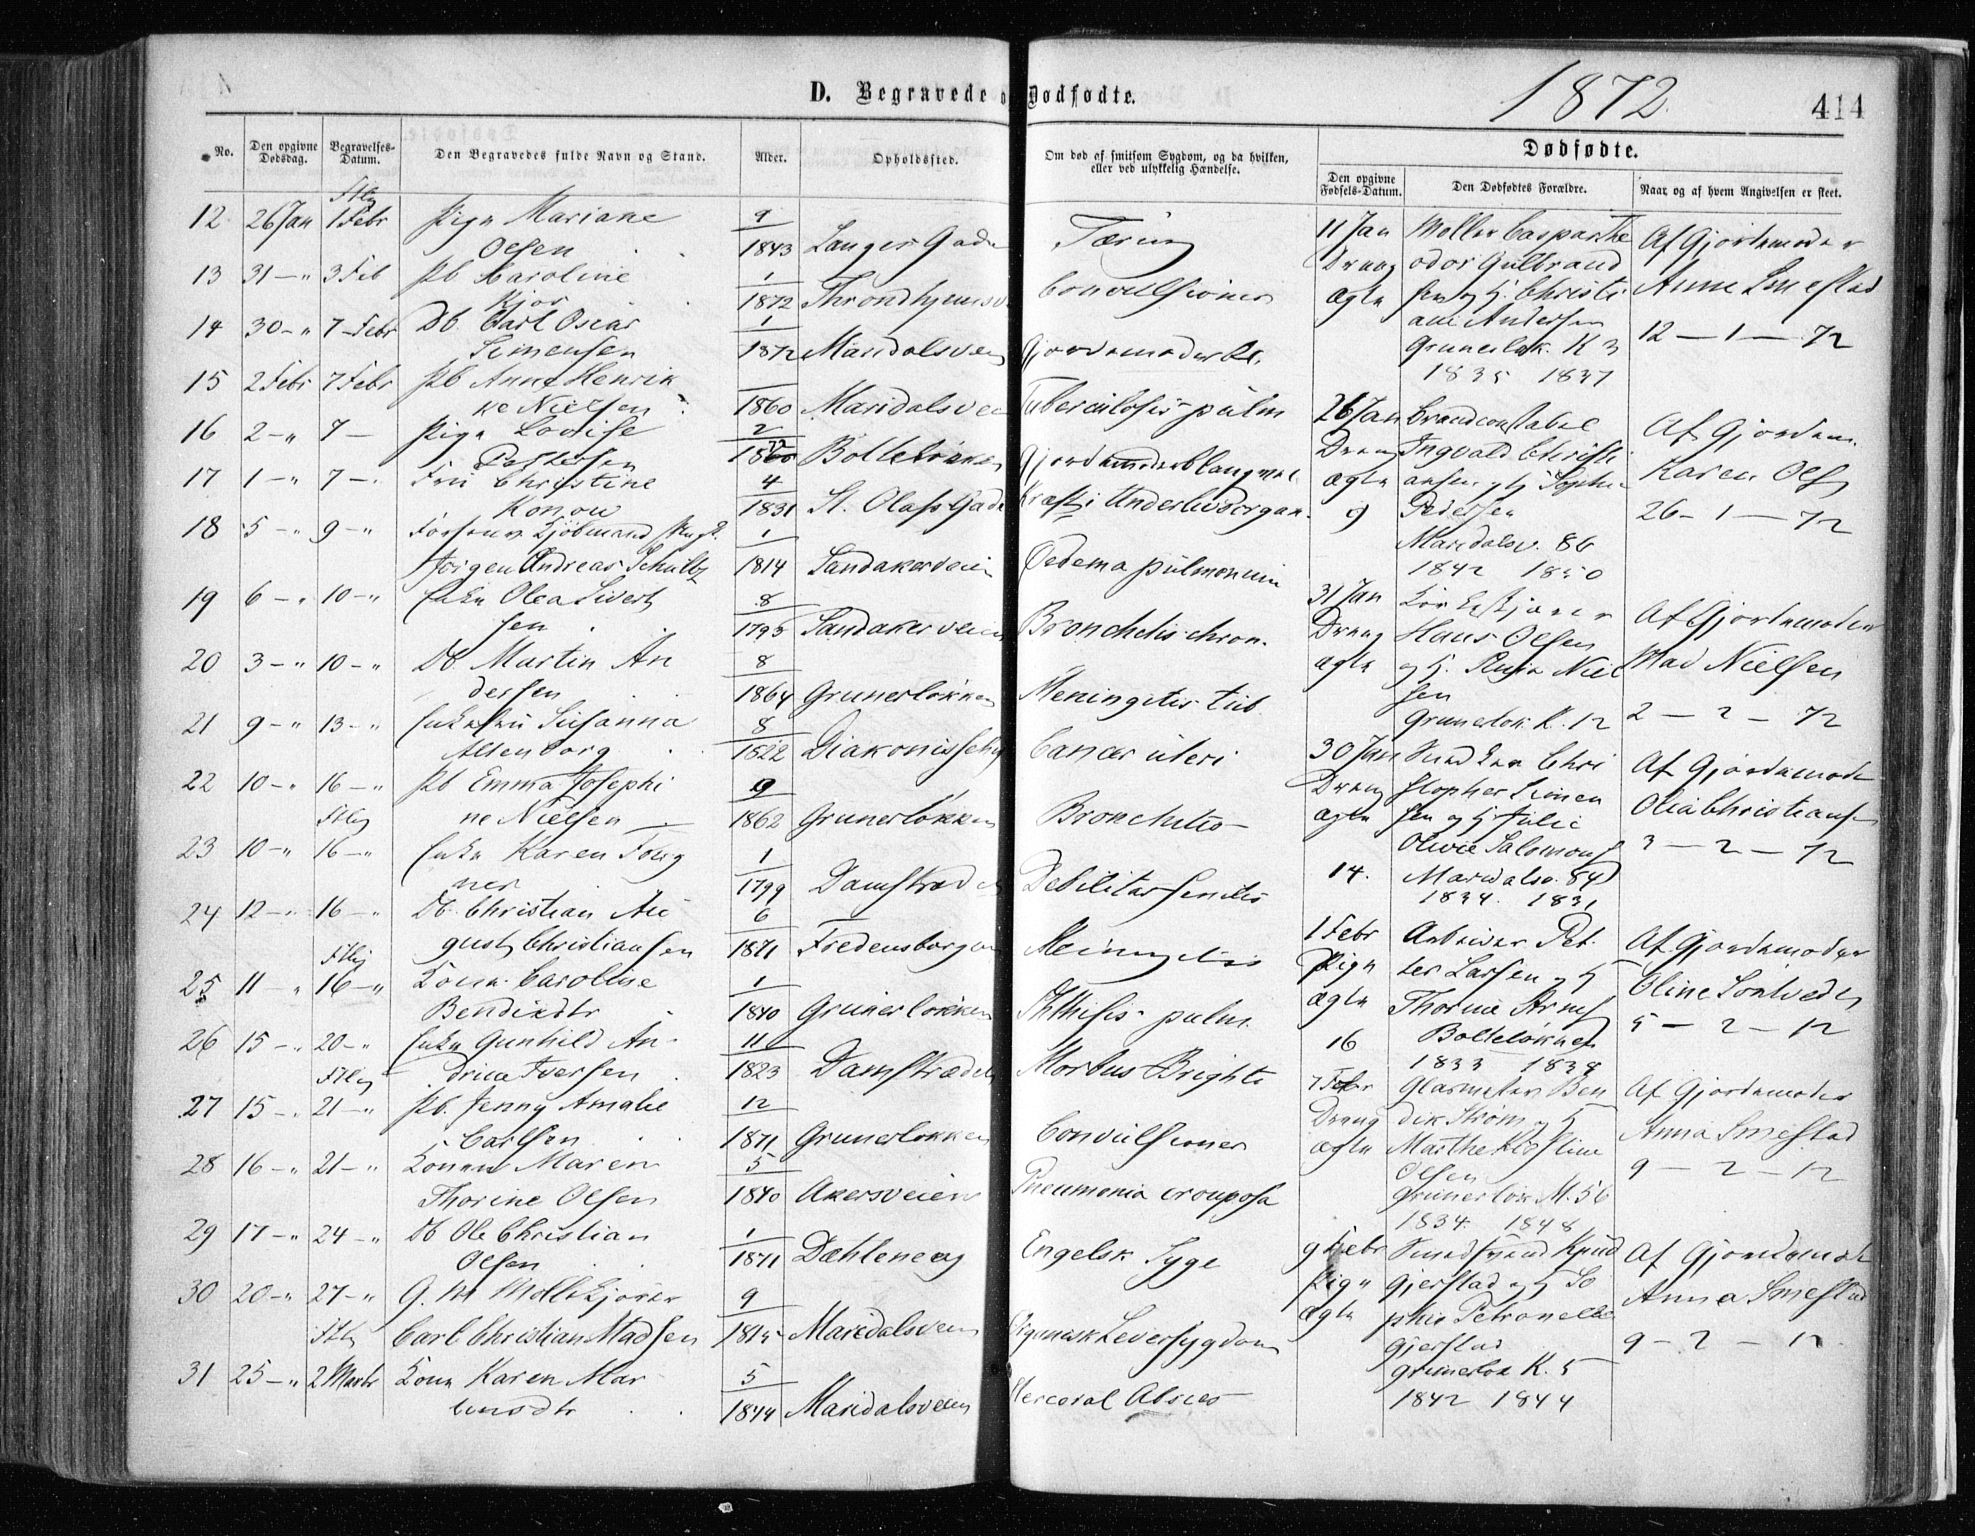 D. Begravede o Dødfødte.
1872.
414
No.
Den opgivne Dødsdag.
Begravelses-Datum.
Den Begravedes fulde Navn og Stand.
Alder.
Opholdssted.
Om død af smitsom Sygdom, og da hvilken,
eller ved ulykkelig Hændelse.
Dødfødte.
Den opgivne Fødsels-Datum.
Den Dødfødtes Forældre.
Naar og af hvem Angivelsen er skeet.
12 26 Jan 1 Febr Pige Mariane 9
Olsen 1843 Langes Gade Tæring
13 31 - " 3 Feb Pb Caroline 1
Kjor 1872 Throndhjemsv Convulsioner
14 30 - " 7 - Febr Db. Carl Oscar 1
Simensen 1872 Maridalsveien
15 2 Febr 7 Febr Pb Anne Henrik
ke Nielsen 1860 Maridalsveien Tuberculosis pulm
16 2 - " 7 - Pige Lovise 2
Pettersen Bolteløkken
17 1 - " 7 - Fru Christine 4
Konow 1831 St. Olafs Gade Kræft i Underlivsorgan.
18 5 - " 9 - " 1
Jørgen Andreas Schultz 1814 Sandakerveien Oedema pulmonum
19 6 - " 10 - " Enke Olea Sivert 8
sen 1795 Sandakerveien Bronchitis chron.
20 3 - " 10 - " Db. Martin An 8
dersen 1864 Grunerløkken Meningitis tub
21 9 - " 13 - " Enkefru Susanna 8
Altenborg 1822 Diakonissehj Cancer uteri
22 10 - " 16 - " Pb Emma Josephi 9
ne Nielsen 1862 Grunerløkken Bronchitis
23 10 - " 16 - " Enke Karen Foug 1
ner 1799 Damstrædet Debilitas senilis
24 12 - " 16 - " Db. Christian Au 6
gust Christiansen 1871 Fredensborgv Meningitis
25 11 - " 16 - " Kone Caroline 1
Bendixdtr 1840 Grunerløkken Phthisis pulm.
26 15 - " 20 - " Enke Gunhild An- 11
drea Iversen 1823 Damstrædet Morbus Brighti
27 15 - " 21 - " Pb. Jenny Amalie 12
Carlsen 1871 Grunerløkken Convulsioner
28 16 - " 21 - " Konen Maren 5
Thorine Olsen 1840 Akersveien Pneumonia crouposa
29 17 - " 24 - " Db Ole Christian 1
Olsen 1871 Dæhleneng Engelsk Syge
30 20 - " 27 - " G. M Møllekjører 9
Carl Christian Madsen 1815 Maridalsveien Organisk Leversygdom
31 25 - " 2 Marts Kone Karen Mar 5
1844 Maridalsveien Stercoral Absces
11 Jan Møller Casparthe Af Gjordemoder
Dreng odor Gulbrand Anne Smestad
ægte sen og H. Christi 12 - 1 - 72
ane Andersen
Grunerløk. K 3
1835 1837
26 Jan Brandconstabel Af Gjordem.
Dreng Ingvald Christi Karen Olsen
ægte ansen og H Sophie 26 - 1 - 72
9 Pedersen
Maridalsv. 86
1842 1850
31 Jan Af Gjordemoder
Dreng Hans Olsen Mad Nielsen
ægte og H. Niel 2 - 2 - 72
sen
Grunerløk K. 12
30 Jan Chri Af Gjordemoder
Dreng stopher Simen Olia Christiansen
ægte sen og H Julie 3 - 2 - 72
Olivie Salomons
14. Maridalsv. 84
1834. 1831
1 Febr Arbeider Pet. Af Gjordemoder
Pige ter Larsen og H Oline
ægte Thorine Arnes 5 - 2 - 72
16 Bolteløkken
1833 1838
7 Febr Glarmester Ben Af Gjordemoder
Dreng dik Strøm og H Anna Smestad
ægte Marthe Kristine 9 - 2 - 72
Olsen
Grunerløk M. 56
1834. 1848
9 Febr Smedsvend Knud Af Gjordemod
Pige Gjerstad og H So Anna Smestad
ægte phie Petronelle 9 - 2 - 72
Gjerstad
Grunerløk K. 5
1842 1844